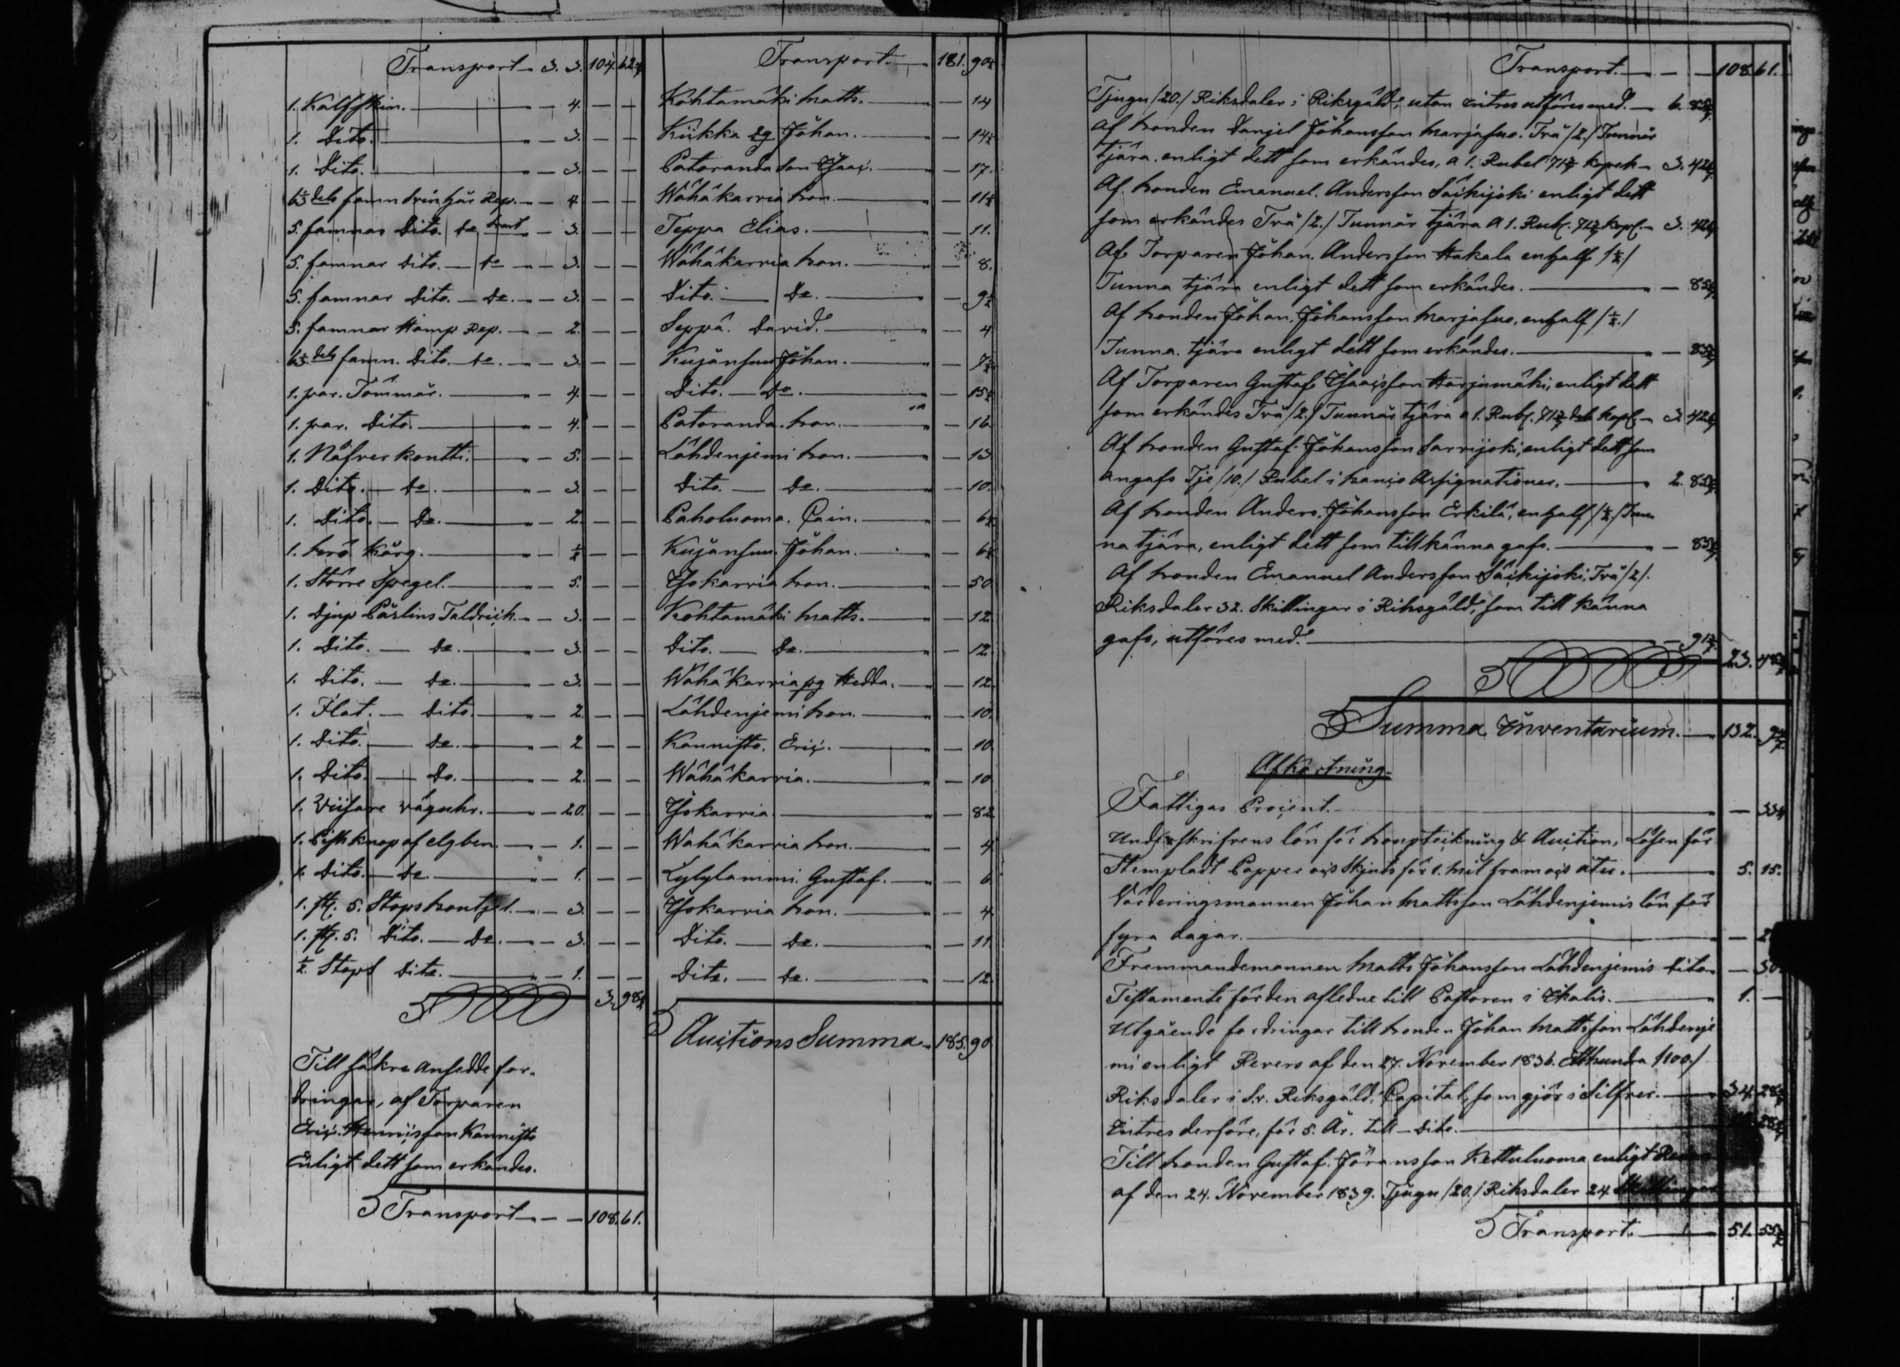 Transport 3. 3. 104. 62 Transport 181. 90
1. Kalfskin. 4. Kohtamäki Matts. 14
1. Dito. 3. Kiikka Johan. 14½
1. Dito. 3. Patoranda 17.
famn Rep. 4 Wähäkarvia bon. 11½
5. famnar Dito. de 3. Teppa Elias. 11.
5. famnar Dito. de 3. Wähäkarvia bon. 8.
5. famnar Dito. de. 3. Dito. De. 9½
5. famnar Hamp Rep. 2. Seppä. David. 4
famn. Dito. de. 3. Kujänsuu Johan. 7½
1. par. Tömmar. 4. Dito. De. 15½
1. par. Dito. 4. Patoranda bon. 16.
1. Näfverkontti. 5. Lähdenjemi bon. 13
1. Dito. De. 3. Dito. De. 10.
1. Dito. De. 2. Paholuoma. 6½
1. korg. ½ Kujänsuu. Johan. 6½
1. Större Spegel. 5. Isokarvia bon. 50.
1. Djup Pårlins Taldrick 3. Kohtamäki Matts. 12.
1. Dito. de. 3. Dito. De. 12.
1. Dito. de. 3. Wähäkarvia pg Hedda. 12
1. Flat. Dito. 2. Lähdenjemi bon. 10.
1. Dito. de. 2 Kannisto. Eric. 10.
1. Dito. De. 2. Wähäkarvia. 10
1. Viisare väguhr. 20. Isokarvia. 82
1. knap af elgben. 1. Wähäkarvia bon. 4
1. Dito. De. 1. Lylylammi. Gustaf. 6
1. st. 5. Stops 3. Isokarvia bon. 4
1. st. 5. Dito. De. 3. Dito. De. 11.
½ Stops Dito. 1. Dito. De. 12.
3. 98
Auctions Summa 185. 90
Till säkra ansedde for-
dringar, af Torparen
Eric. Kannisto
Enligt dett som erkändes.
Transport 108. 61.
Transport. 108. 61.
Tjugu /20./ Riksdaler i Riksgäld; utan Intres utföres med. 6. 85
Af bonden Danjel Johansson Marjasuo. Två /2./ Tunnor
tjära. enligt dett som erkändes, a 1. Rubel 71 kopek 3. 42
Af bonden Emanuel. Andersson Säikijoki enligt dett
som erkändes Två /2./ Tunnor tjära a 1. Rub. 71 kop. 3. 42
Af Torparen Johan. Andersson Hakala enhalf /½./
Tunna tjära enligt dett som erkändes. 85
Af bonden Johan. Johansson Marjasuo, enhalf /½./
Tunna. tjära enligt dett som erkändes. 85
Af Torparen Gustaf Isacsson Harjumäki; enligt dett
som erkändes Två /2./ Tunnor tjära a 1. Rub. 71 kop. 3. 42
Af bonden Gustaf. Johansson Sarvijoki; enligt dett som
angafs Tje /10./ Rubel i banco Assignationer. 2. 85
Af bonden Anders. Johansson Erkilä, enhalf /½./ Tun-
na tjära, enligt dett som tillkänna gafs. 85
Af bonden Emanuel Andersson Säikijoki, Två /2/.
Riksdaler 32. Skillingar i Riksgäld, som till känna
gafs, utföres med. 91
23. 48
Summa Inventarium. 132.
Afkortning.
Fattigas Procent. 33
Undskrifvens lön för bouptekning & Auction, Lösen för
Stempladt Papper Skjuts för 1. mil fram åter. 5. 15.
Värderingsmannen Johan Mattsson Lähdenjemis lön för
fyra dagar.
Fremmandemannen Matts Johansson Lähdenjemis Dito 50
Testamente för den afledne till Pastoren i Ikalis. 1.
Utgående fordringar till bonden Johan Mattsson Lähdenje
mi enligt Revers af den 27. November 1836. Etthundra /100/
Riksdaler i Sv. Riksgäld. Capital, som gjör i Silfver. 34. 28
Intres derföre, för 5. År. Till Dito.
Till bonden Gustaf. Göransson Kettuluoma enligt
af den 24. November 1839. Tjugu /20./ Riksdaler 24. Skillingar
Transport. 51. 55